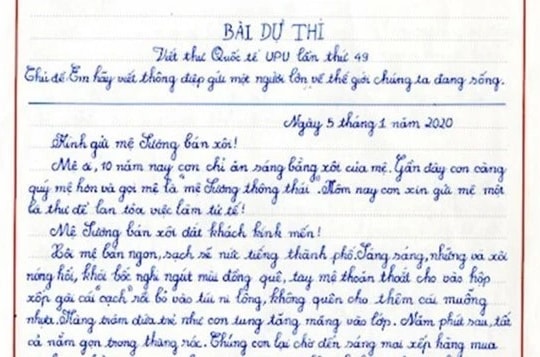 BÀI DỰ THI
Viết thư Quốc tế UPU lần thứ 49
Chủ đề Em hãy viết thông điệp gửi một người lớn về thế giới chúng ta đang sống.
Ngày 5 tháng 1 năm 2020
Kính gửi mệ Sương bán xôi!
Mệ ơi, 10 năm nay con chỉ ăn sáng bằng xôi của mệ. Gần đây con càng
quý mệ hơn và gọi mệ là "mệ Sương thông thái". Hôm nay con xin gửi mệ một
lá thư để lan tỏa việc làm tử tế!
Mệ Sương bán xôi đắt khách kính mến!
Xôi mệ bán ngon, sạch sẽ nức tiếng thành phố. Sáng sáng, những vá xôi
nóng hổi, khói bốc nghi ngút mùi đồng quê, tay mệ thoăn thoắt cho vào hộp
xốp gài cái "cạch" rồi bỏ vào túi ni lông, không quên cho thêm cái muỗng
nhựa. Hàng trăm đứa trẻ như con tung tăng mang vào lớp. Năm phút sau, tất
cả nằm gọn trong thùng rác. Chúng con lại chờ đến sáng mai xếp hàng mua